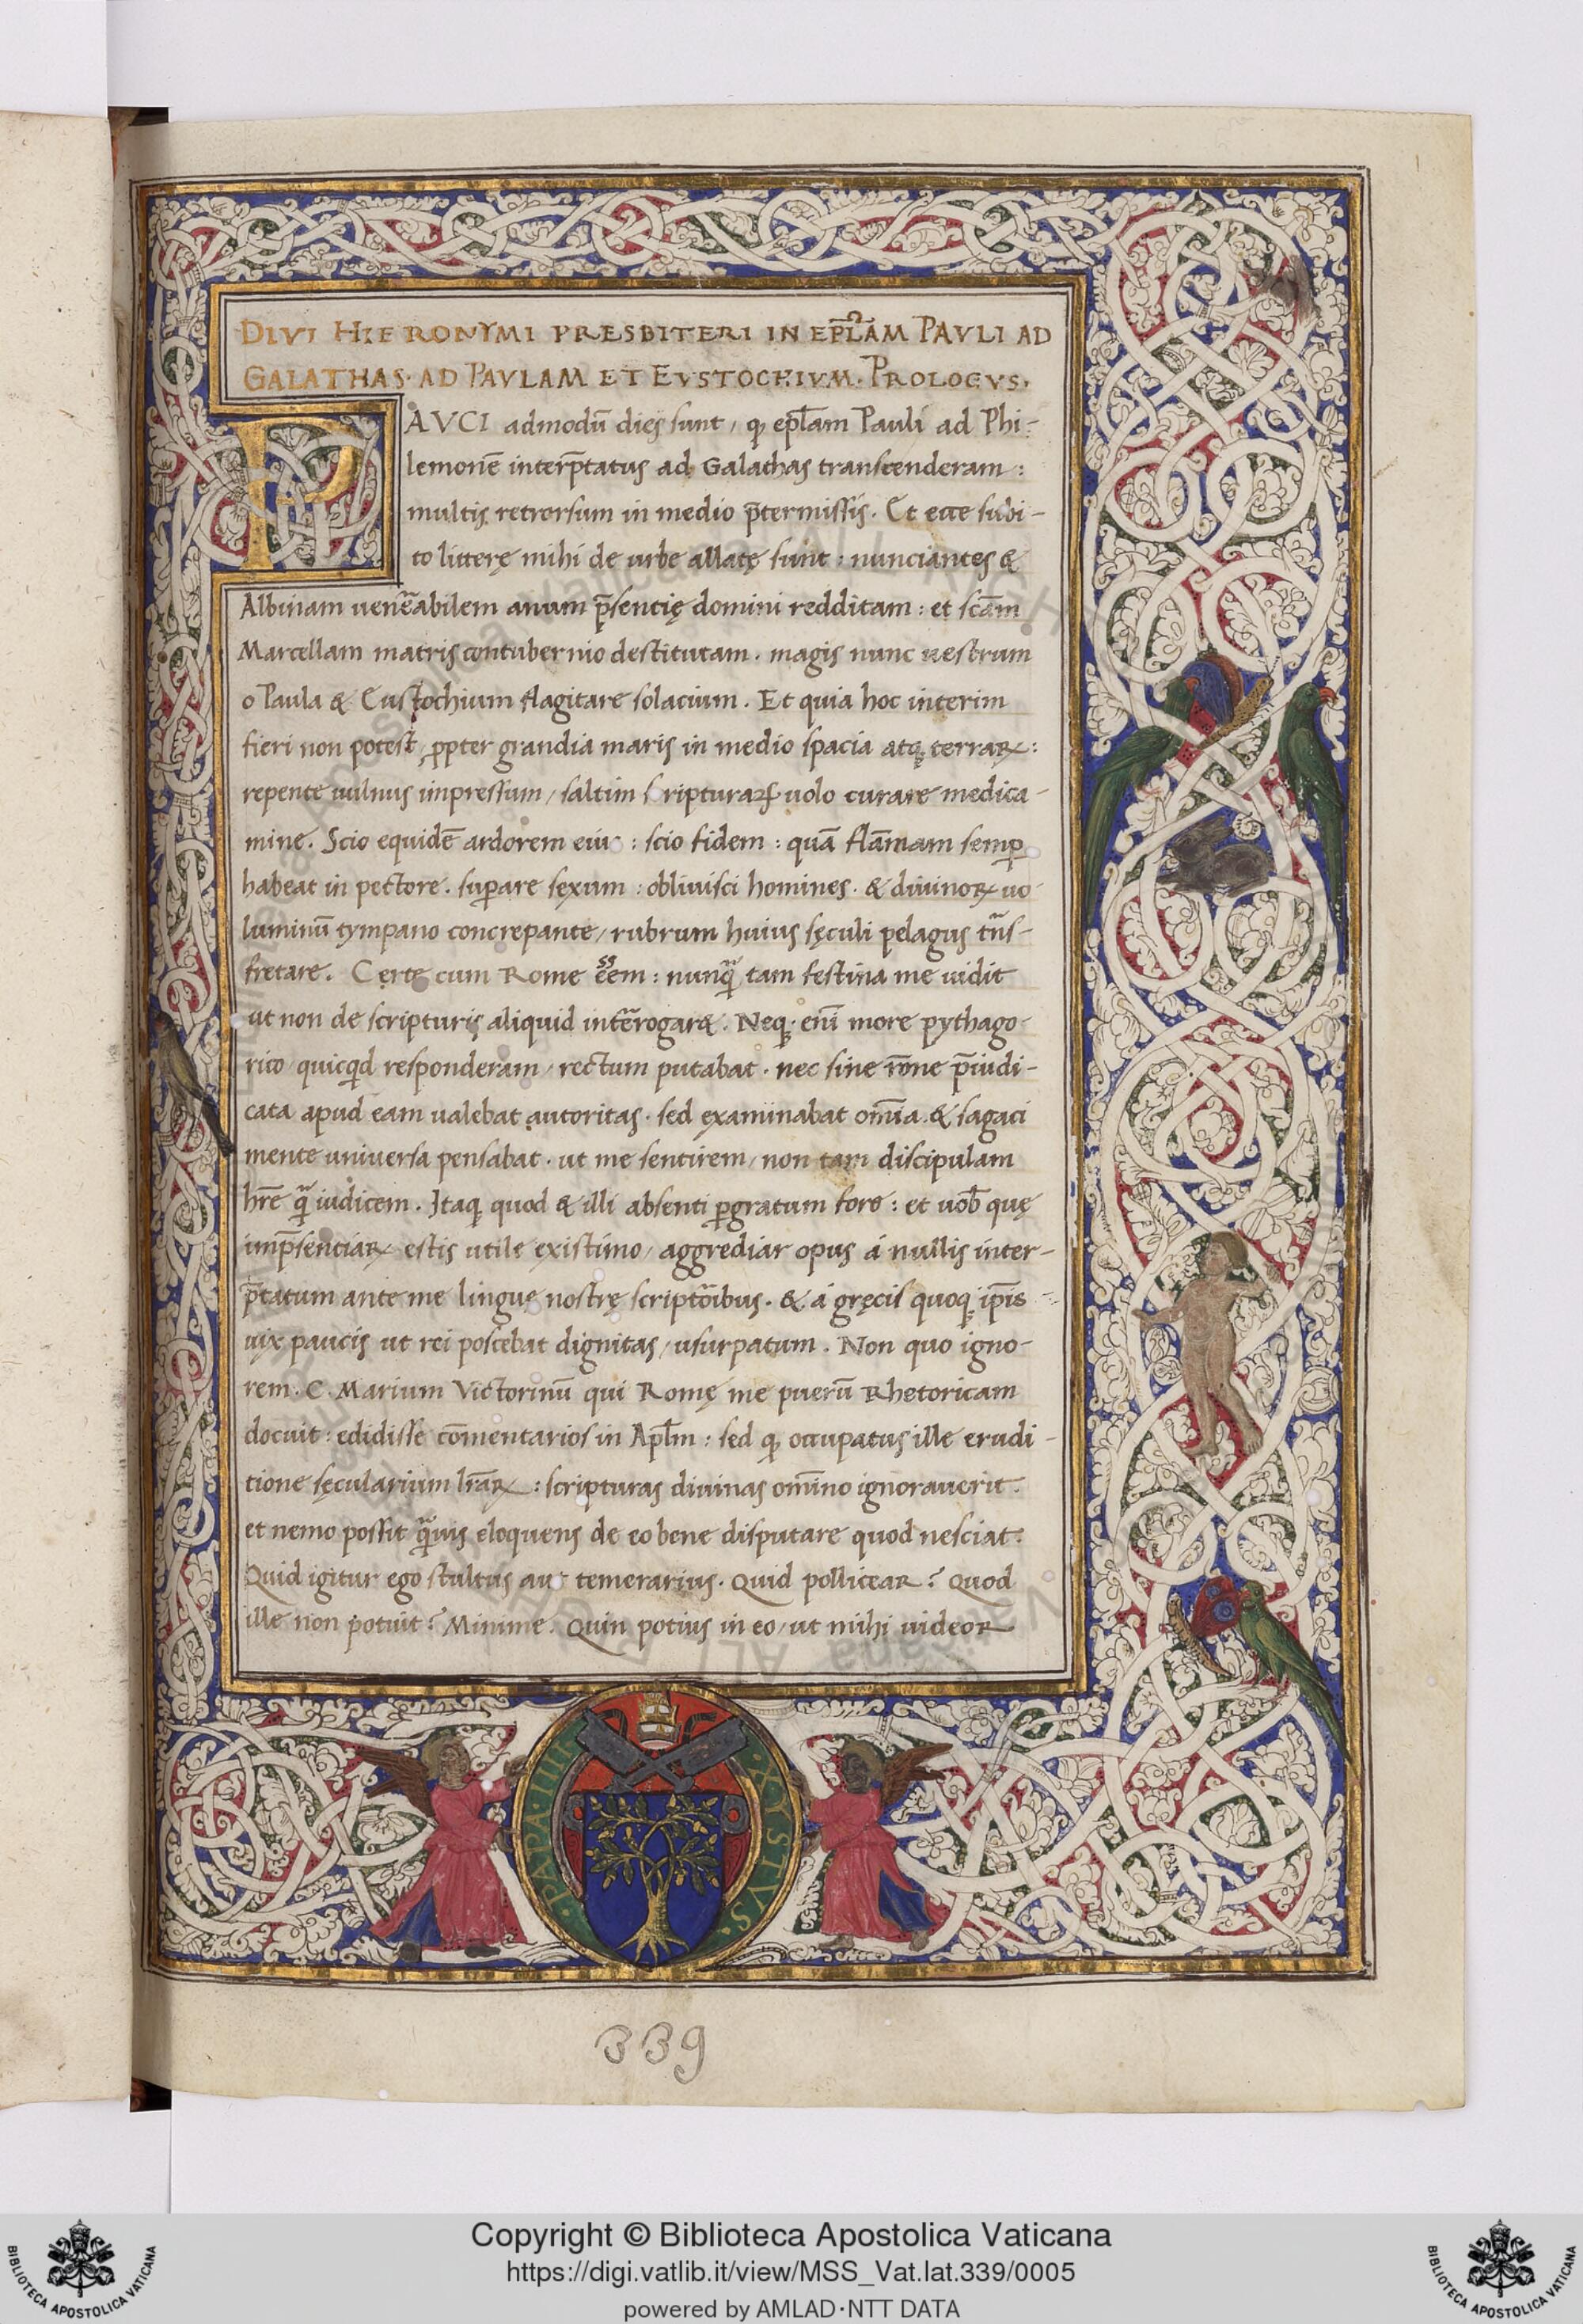 DIVI HIERONYMI PRESBITERI IN EPL̅AM PAVLI AD
GALATHAS· AD PAVLAM ET EVSTOCHIVM· PROLOGVS.
PAVCI admodū dies sunt, ꝙ epl̅am Pauli ad Phi-
lemonē interp̄tatus ad Galathas transcenderam:
multis retrorsum in medio p̄termissis. Et ecce subi-
to litterę mihi de urbe allatę sunt: nunciantes &
Albinam uen̄eabilem anum p̄sentię domini redditam: et scām
Marcellam matris contubernio destitutam. magis nunc uestrum
o Paula & Eustochium flagitare solacium. Et quia hoc interim
fieri non potest, ꝓpter grandia maris in medio spacia atq; terraꝝ:
repente uulnus impressum, saltim scripturaꝝ uolo curare medica-
mine. Scio equidē ardorem eius: scio fidem: quā flāmam semꝑ
habeat in pectore. suꝑare sęxum: obliuisci homines. & diuinoꝝ uo-
luminū tympano concrepante, rubrum huius sęculi pelagus trn̄s-
fretare. Certe cum Rome eēem: nunq̄ tam festina me uidit
ut non de scripturis aliquid intērogaret. Neq; enī more pythago-
rico quicqd responderam, rectum putabat. nec sine rōne p̄iudi-
cata apud eam ualebat autoritas. sed examinabat omīa & sagaci
mente uniuersa pensabat. ut me sentirem, non tam discipulam
hr̄e q̄ iudicem. Itaq; quod & illi absenti ꝑgratum fore: et uob̄ quę
inp̄sentiaꝝ estis utile existimo, aggrediar opus á nullis inter-
p̄tatum ante me linguę nostrę scriptōibus. & á gręcis quoq; ip̄is
uix paucis ut rei poscebat dignitas, usurpatum. Non quo igno-
rem. C. Marium Victorinū qui Romę me puerū Rhetoricam
docuit: edidisse cōmentarios in Apl̅m: sed ꝙ occupatus ille erudi-
tione sęcularium lr̄aꝝ: scripturas diuinas omīno ignorauerit.
et nemo possit q̄uis eloquens de eo bene disputare quod nesciat.
Quid igitur ego stultus aut temerarius. Quid pollicear? Quod
ille non potuit? Minime. Quin potius in eo, ut mihi uideor
·PAPA·IIII·
·XYSTVS·
339
Copyright © Biblioteca Apostolica Vaticana
https://digi.vatlib.it/view/MSS_Vat.lat.339/0005
powered by AMLAD·NTT DATA
BIBLIOTECA APOSTOLICA VATICANA
BIBLIOTECA APOSTOLICA VATICANA